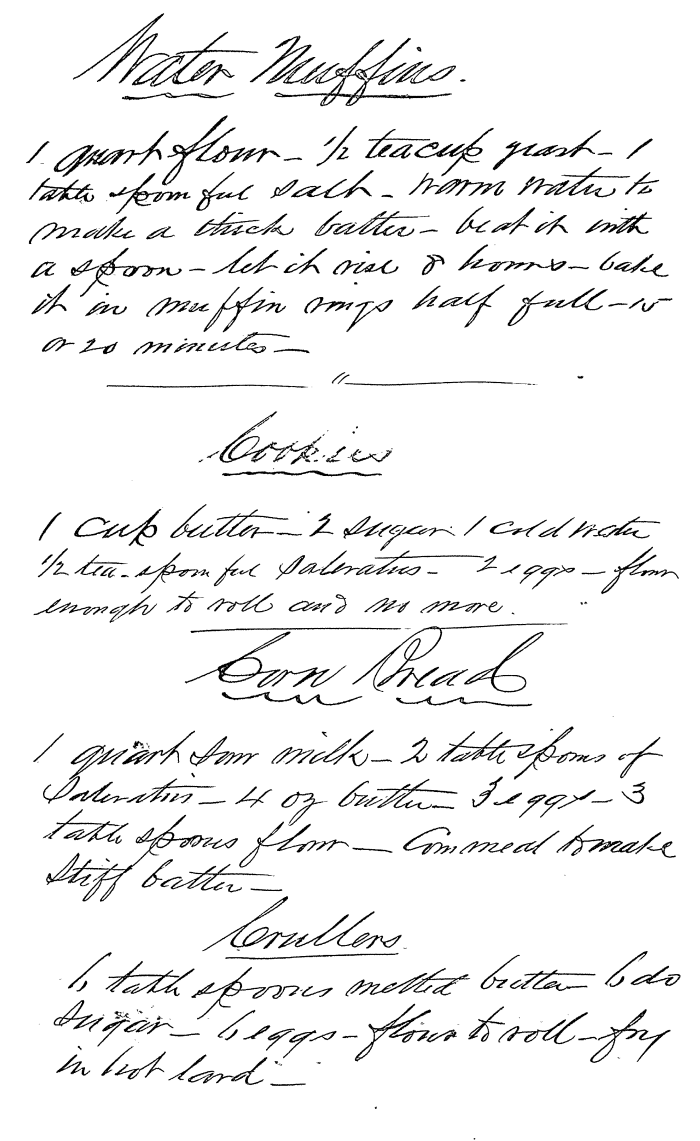 Water Muffins.
1 quart flour – 1/2 teacup yeast – 1
table spoon ful salt – warm water to
make a thick batter – beat it with
a spoon – let it rise 8 hours – bake
it in muffin rings half full – 15
or 20 minutes –
"
Cookies
1 cup butter – 2 sugar 1 cold water
1/2 tea-spoon ful Saleratus – 2 eggs – flour
enough to roll and no more.
Corn Bread
1 quart sour milk – 2 table spoons of
Saleratus – 4 oz butter – 3 eggs – 3
table spoons flour – Cornmeal to make
stiff batter –
Crullers
6 table spoons melted butter – 6 do
sugar – 6 eggs – flour to roll – fry
in hot lard –